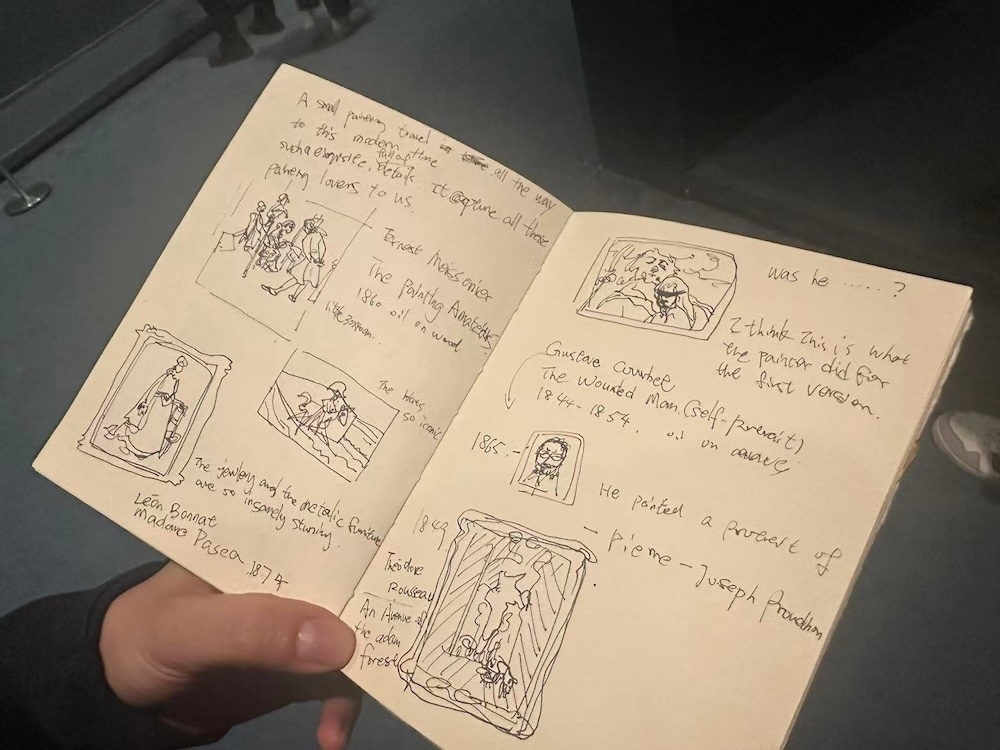 A small painting travel all the way
to this modern time
such a exquisite, full of details. It capture all these
painting lovers to us.
Ernest Meissonier
The Painting Amateurs
1860 oil on wood
The blues,
so iconic
The jewlery and the metalic furniture
are so insanely stunning.
Léon Bonnat
Madame Pasca 1874
was he ..... ?
I think this is what
the painter did for
the first version.
Gustave Courbet
The Wounded Man. (self-portrait)
1844 - 1854. oil on
1865. -
He painted a of
- Pierre - Joseph Proudhon
1849.
Theodore
Rousseau
An Avenue of
the adam
forest